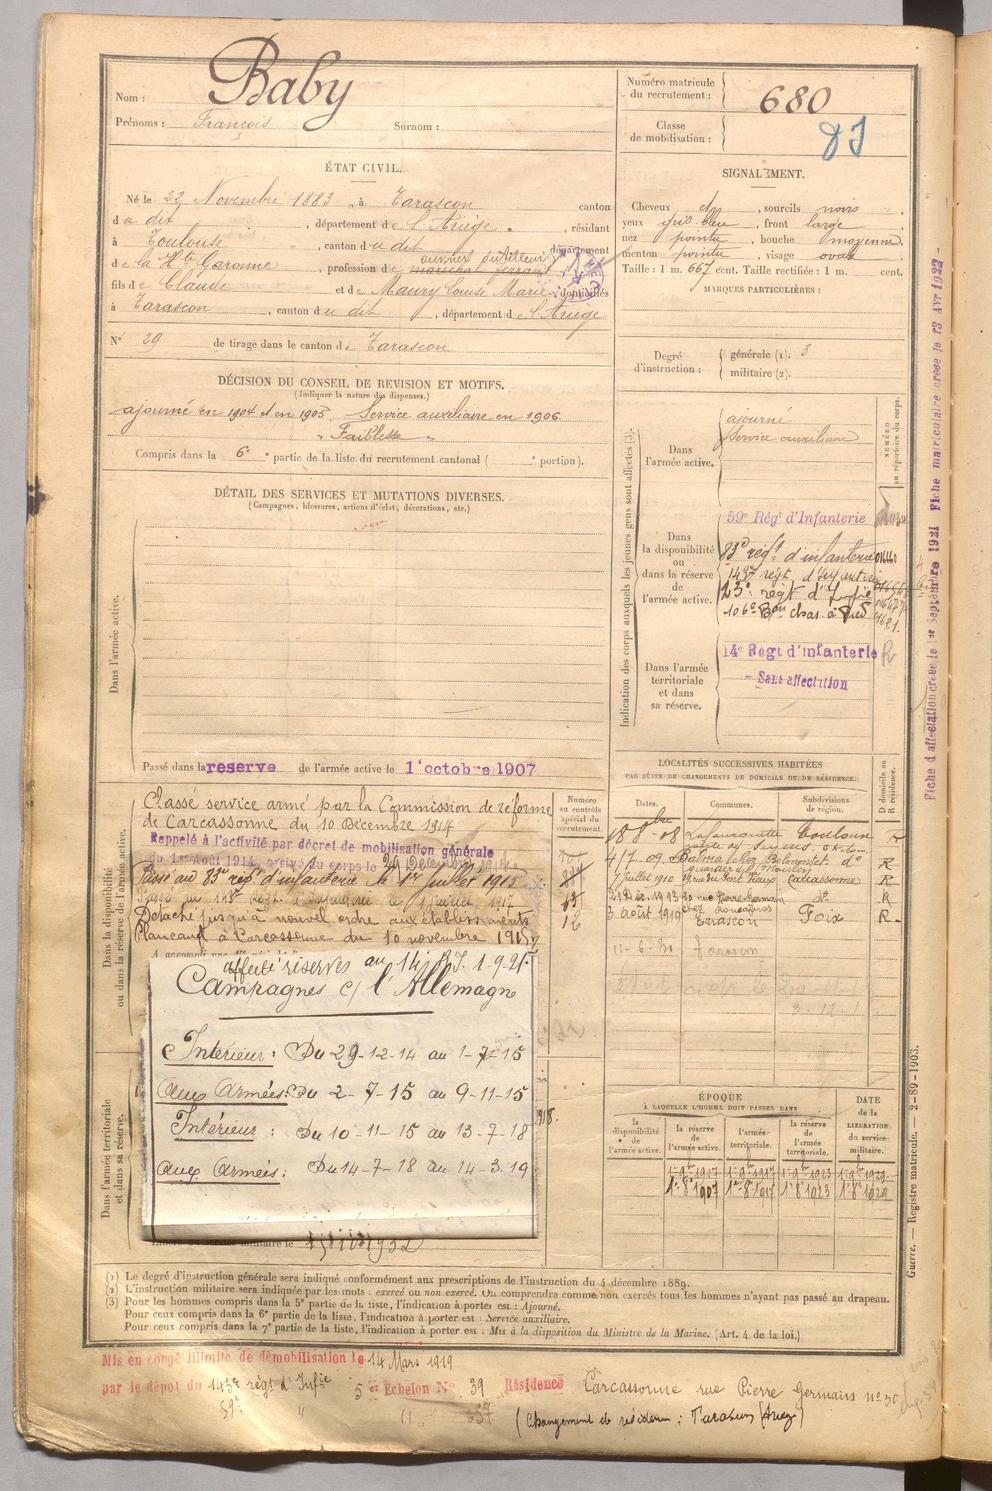 Nom : Baby
Prénoms : François Surnom :
Numéro matricule du recrutement : 680
Classe de mobilisation :
ÉTAT CIVIL.
Né le 22 Novembre 1883, à Tarascon canton
du dit, département de l'Ariège, résidant
à Toulouse, canton du dit département
ouvrier outilleur
de la Hte Garonne, profession de maréchal ferrant
fils de Claude et de Maury Louise Marie, domiciliés
à Tarascon, canton du dit, département de l'Ariège
N° 29 de tirage dans le canton de Tarascon
SIGNALEMENT.
Cheveux chn, sourcils noirs,
yeux gris bleu, front large,
nez pointu, bouche moyenne,
menton pointu, visage ovale
Taille : 1 m. 667 cent. Taille rectifiée : 1 m. cent.
MARQUES PARTICULIÈRES :
Degré d'instruction : générale (1). 3
militaire (2).
DÉCISION DU CONSEIL DE REVISION ET MOTIFS.
(Indiquer la nature des dispenses.)
ajourné en 1904 et en 1905. Service auxiliaire en 1906
" Faiblesse "
Compris dans la 6e partie de la liste du recrutement cantonal ( portion).
DÉTAIL DES SERVICES ET MUTATIONS DIVERSES.
(Campagnes, blessures, actions d'éclat, décorations, etc.)
Dans l'armée active.
Passé dans la reserve de l'armée active le 1er octobre 1907
Indication des corps auxquels les jeunes gens sont affectés (3).
NUMÉRO au répertoire du corps.
Dans l'armée active.
ajourné
Service auxiliaire
Dans la disponibilité ou dans la réserve de l'armée active.
59e Régt d'Infanterie
83e régt d'infanterie
143e régt d'infanterie
23e régt d'Infie
106e Bon chas. à Pied
Dans l'armée territoriale et dans sa réserve.
14e Régt d'infanterie
Sans affectation
Fiche d'affectation créée le 1er Septembre 1921 Fiche matriculaire créée le 13 Avr 1922
Dans la disponibilité ou dans la réserve de l'armée active.
Classe service armé par la Commission de réforme
de Carcassonne du 10 Décembre 1914
Rappelé à l'activité par décret de mobilisation générale
du 1er Août 1914, arrivé au corps le 29 Décembre 1914
Passé au 83e régt d'infanterie le 1er Juillet 1915
Passé au 143e Régt d'Infanterie le 1 Juillet 1917
Détaché jusqu'à nouvel ordre aux établissements
Plancard à Carcassonne du 10 novembre 1915
Numéro au contrôle spécial du recrutement.
12
affecté réserves au 14 R.I. 1-9-21.
Campagnes c/ l'Allemagne
Intérieur : Du 29-12-14 au 1-7-15
aux Armées : Du 2-7-15 au 9-11-15
Intérieur : Du 10-11-15 au 13-7-18
aux Armées : Du 14-7-18 au 14-3-19
Dans l'armée territoriale et dans sa réserve.
LOCALITÉS SUCCESSIVES HABITÉES
PAR SUITE DE CHANGEMENTS DE DOMICILE OU DE RÉSIDENCE.
Dates. Communes. Subdivisions de région. D domicile ou R résidence.
Toulouse R
4/7-09 Balma chez Bolmontet do R
7 Juillet 1910 Carcassonne R
rue Pierre Germain do R
3 août 1919 Tarascon Foix R
11-6-30 Tarascon
ÉPOQUE
À LAQUELLE L'HOMME DOIT PASSER DANS
DATE de la LIBÉRATION du service militaire.
la disponibilité de l'armée active. la réserve de l'armée active. l'armée territoriale. la réserve de l'armée territoriale.
1er 8bre 1907 1er 8bre 1917 1er 8bre 1923 1er 8bre 1929
Guerre. — Registre matricule. — 2-89-1903.
(1) Le degré d'instruction générale sera indiqué conformément aux prescriptions de l'instruction du 4 décembre 1889.
(2) L'instruction militaire sera indiquée par les mots : exercé ou non exercé. On comprendra comme non exercés tous les hommes n'ayant pas passé au drapeau.
(3) Pour les hommes compris dans la 5e partie de la liste, l'indication à porter est : Ajourné.
Pour ceux compris dans la 6e partie de la liste, l'indication à porter est : Service auxiliaire.
Pour ceux compris dans la 7e partie de la liste, l'indication à porter est : Mis à la disposition du Ministre de la Marine. (Art. 4 de la loi.)
Mis en congé illimité de démobilisation le 14 Mars 1919
par le dépot du 143e régt d'Infie 5 er Echelon N° 39 Résidence Carcassonne rue Pierre Germain n° 30
59e " 11 657
(Changement de résidence : Tarascon (Ariège)